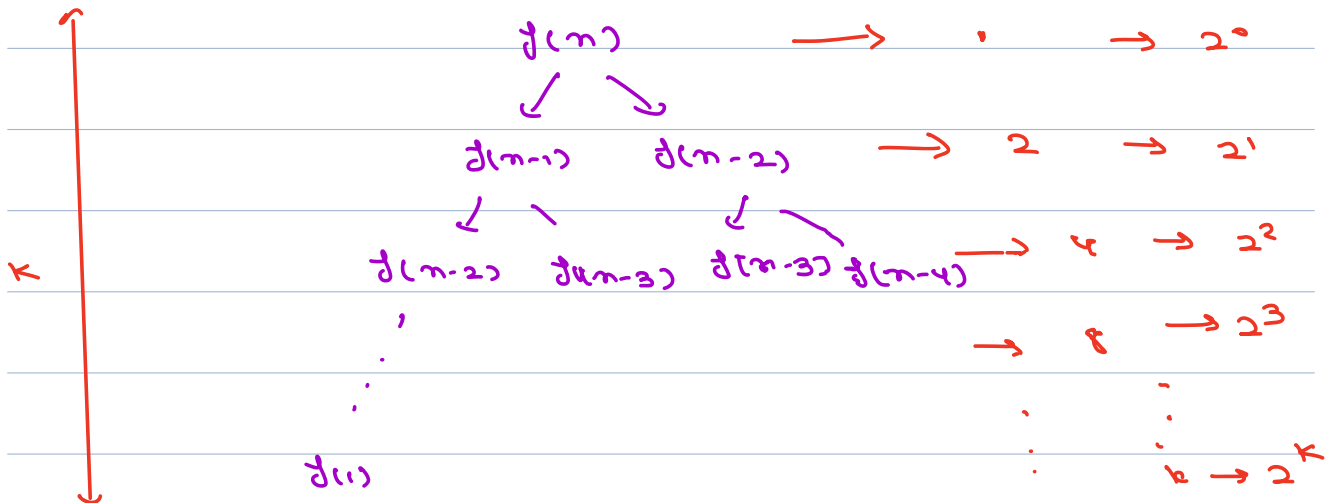 f(n) → 1 → 2⁰
f(n-1) f(n-2) → 2 → 2¹
f(n-2) f(n-3) f(n-3) f(n-4) → 4 → 2²
K
→ 8 → 2³
f(1) k → 2ᴷ